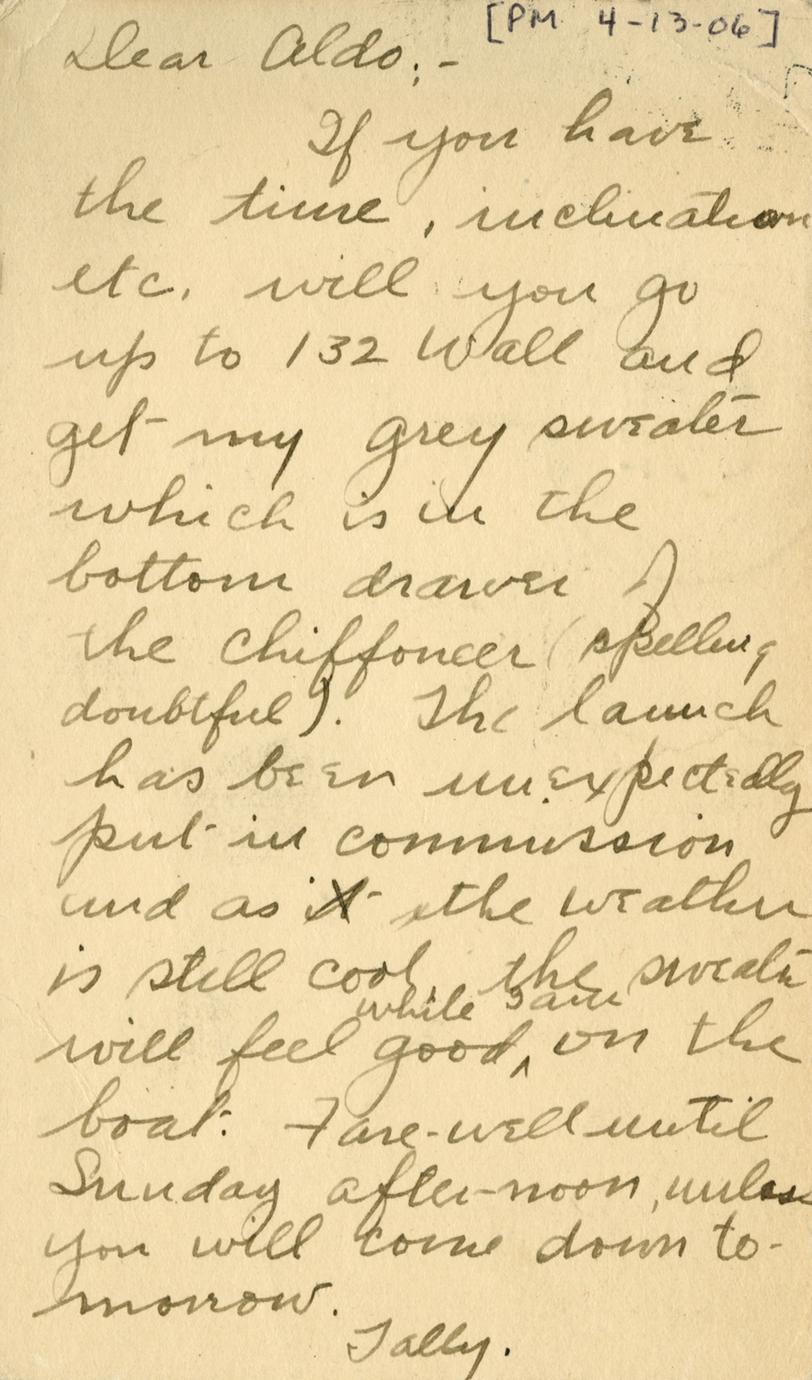 [PM 4-13-06]
Dear Aldo:-
If you have
the time, inclination
etc. will you go
up to 132 Wall and
get my grey sweater
which is in the
bottom drawer of
the chiffoneer (spelling
doubtful). The launch
has been unexpectedly
put in commission
and as it the weather
is still cool, the sweater
while I am
will feel good ^ on the
boat. Fare-well until
Sunday after-noon, unless
you will come down to-
morrow.